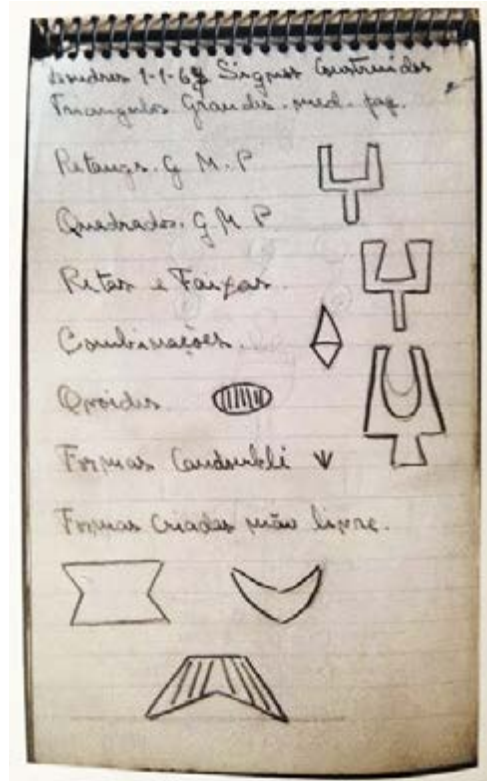 Londres 1-1-64 Signos Construidos
Triangulos Grandes. med. peq.
Retangs. G M. P
Quadrados. G. M P
Retas e Faixas.
Combinações.
Ovoides.
Formas Candomblé
Formas Criadas mão livre.